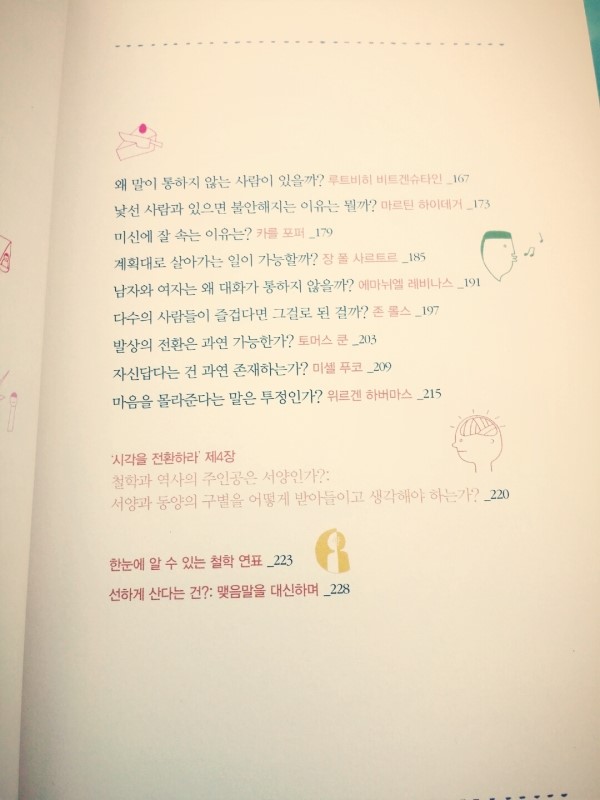 왜 말이 통하지 않는 사람이 있을까? 루트비히 비트겐슈타인 _167
낯선 사람과 있으면 불안해지는 이유는 뭘까? 마르틴 하이데거 _173
미신에 잘 속는 이유는? 카를 포퍼 _179
계획대로 살아가는 일이 가능할까? 장 폴 사르트르 _185
남자와 여자는 왜 대화가 통하지 않을까? 에마뉘엘 레비나스 _191
다수의 사람들이 즐겁다면 그걸로 된 걸까? 존 롤스 _197
발상의 전환은 과연 가능한가? 토머스 쿤 _203
자신답다는 건 과연 존재하는가? 미셸 푸코 _209
마음을 몰라준다는 말은 투정인가? 위르겐 하버마스 _215
'시각을 전환하라' 제4장
철학과 역사의 주인공은 서양인가?:
서양과 동양의 구별을 어떻게 받아들이고 생각해야 하는가? _220
한눈에 알 수 있는 철학 연표 _223
선하게 산다는 건?: 맺음말을 대신하며 _228